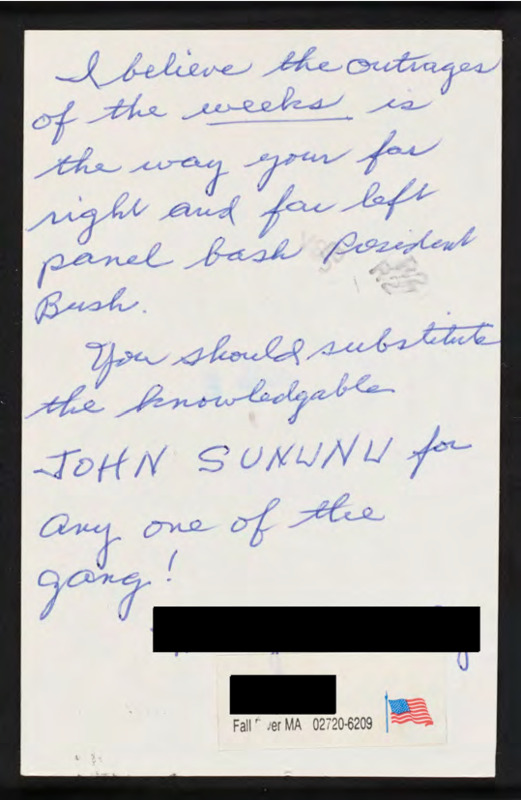 I believe the outrages
of the weeks is
the way your far
right and far left
panel bash President
Bush.
You should substitute
the knowledgable
JOHN SUNUNU for
any one of the
gang!
Fall er MA 02720-6209